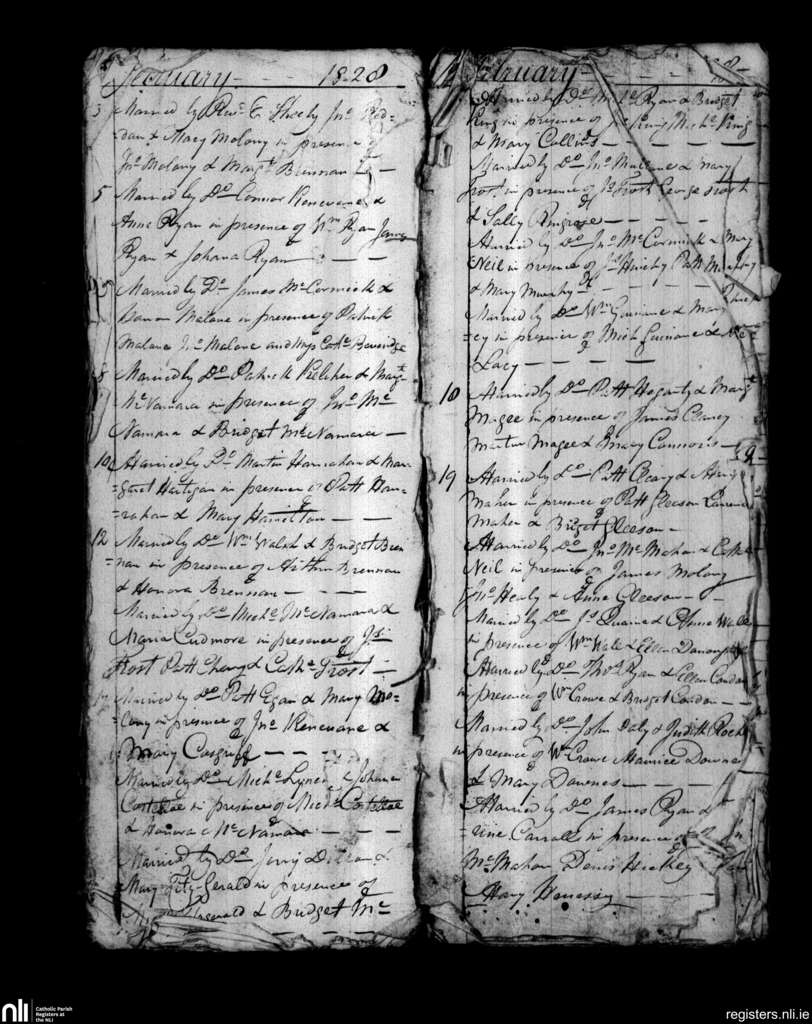 February 1828
5 Married by Revd. C. Sheehy Jno.
& Mary Molony in presence of
Jno. Molony & Margt. Brennan
5 Married by Do. Connor Kenevane &
Anne Ryan in presence of Wm. Ryan
Ryan & Johana Ryan
Married by Do. James McCormick &
Malone in presence of Patrick
Malone Jno. Malone and Mrs Cathe. Beveridge
8 Married by Do. Patrick Kelcher & Margt.
McNamara in presence of Jno. Mc
Namara & Bridget McNamara
10 Married by Do. Martin Hanrahan & Mar=
=garet Hartigan in presence of Patt Han=
=rahan & Mary Hamilton
12 Married by Do. Wm. Walsh & Bridget Bren
=nan in presence of Arthur Brennan
& Honora Brennan
Married by Do. Michl. McNamara &
Maria Cudmore in presence of
Frost Patt & Cathe. Frost
Married by Do. Patt Egan & Mary
in presence of Jno. Kenevane &
Mary Cosgriff
Married by Do. Michl. Lynch & Johana
Costelloe in presence of Michl. Costelloe
& Honora McNamara
Married by Do. Jerry &
Mary Fitz-Gerald in presence of
& Bridget Mc
February
Married by Do. Michl. Ryan & Bridget
King in presence of Michl. King
& Mary Collins
Married by Do. Jno. & Mary
Frost in presence of Js. Frost George Frost
& Sally Ringrose
Married by Do. Jno. McCormick & Mary
Neil in presence of Patt Murphy
& Mary Murphy
Married by Do. Wm. Guinane & Mary
in presence of Mich Guinane &
Lacy
18 Married by Do. Patt Hogarty & Margt.
Magee in presence of James Clancy
Martin Magee & Bracy Connors
19 Married by Do. Patt Cleary &
Maher in presence of Patt Gleeson Laurence
Maher & Bridget Gleeson
Married by Do. Jno. McMahon & Cathe.
Neil in presence of James Molony
Jno. Healy & Anne Gleeson
Married by Do. Js. Quaine & Anne Wall
in presence of Wm. Wall & Ellen
Married by Do. Thos. Ryan & Ellen Condon
in presence of Wm. Crowe & Bridget Condon
Married by Do. John Daly & Judith Roche
in presence of Wm. Crowe Maurice Downes
& Mary Downes
Married by Do. James Ryan &
Carroll in presence of
McMahon Denis Hickey
Mary Henessy
nli
Catholic Parish
Registers at
the NLI
registers.nli.ie